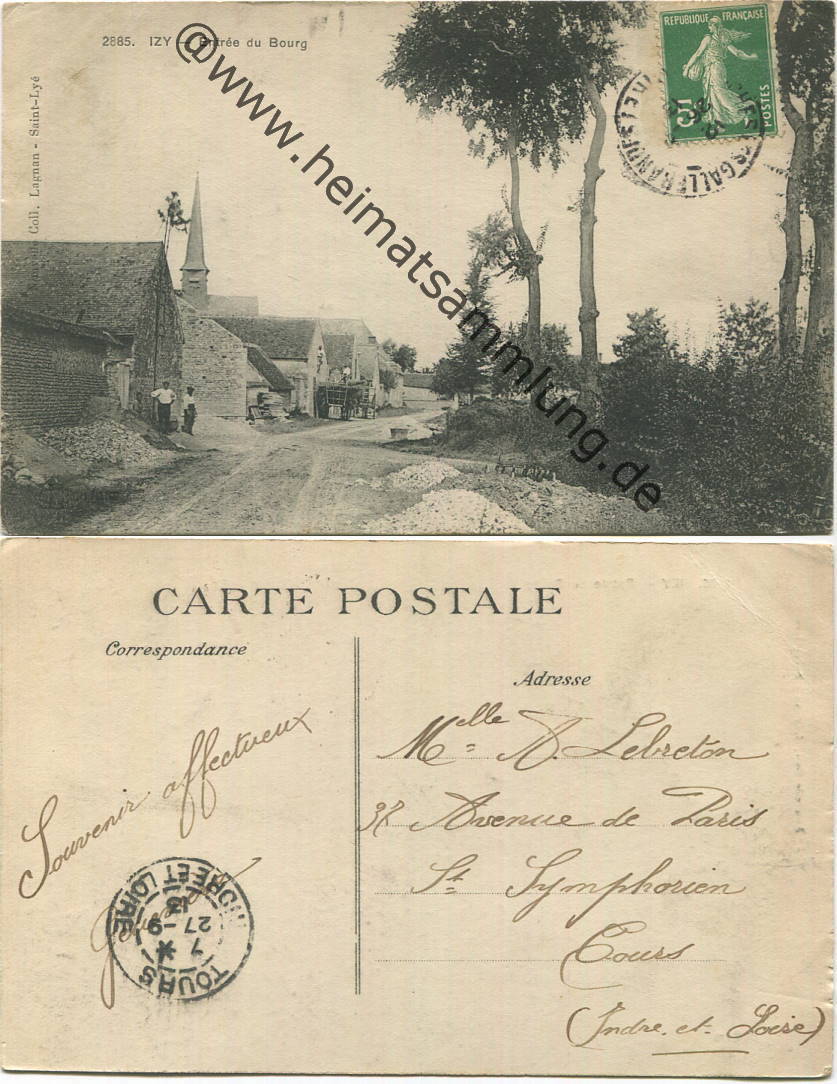 2885. IZY — Entrée du Bourg
Coll. Lagnan - Saint-Lyé
RÉPUBLIQUE FRANÇAISE
5
POSTES
@www.heimatsammlung.de
CARTE POSTALE
Correspondance
Adresse
Souvenir affectueux
Melle A. Lebreton
37 Avenue de Paris
St Symphorien
Tours
(Indre-et-Loire)
TOURS
7 *
27 -9
13
INDRE ET LOIRE